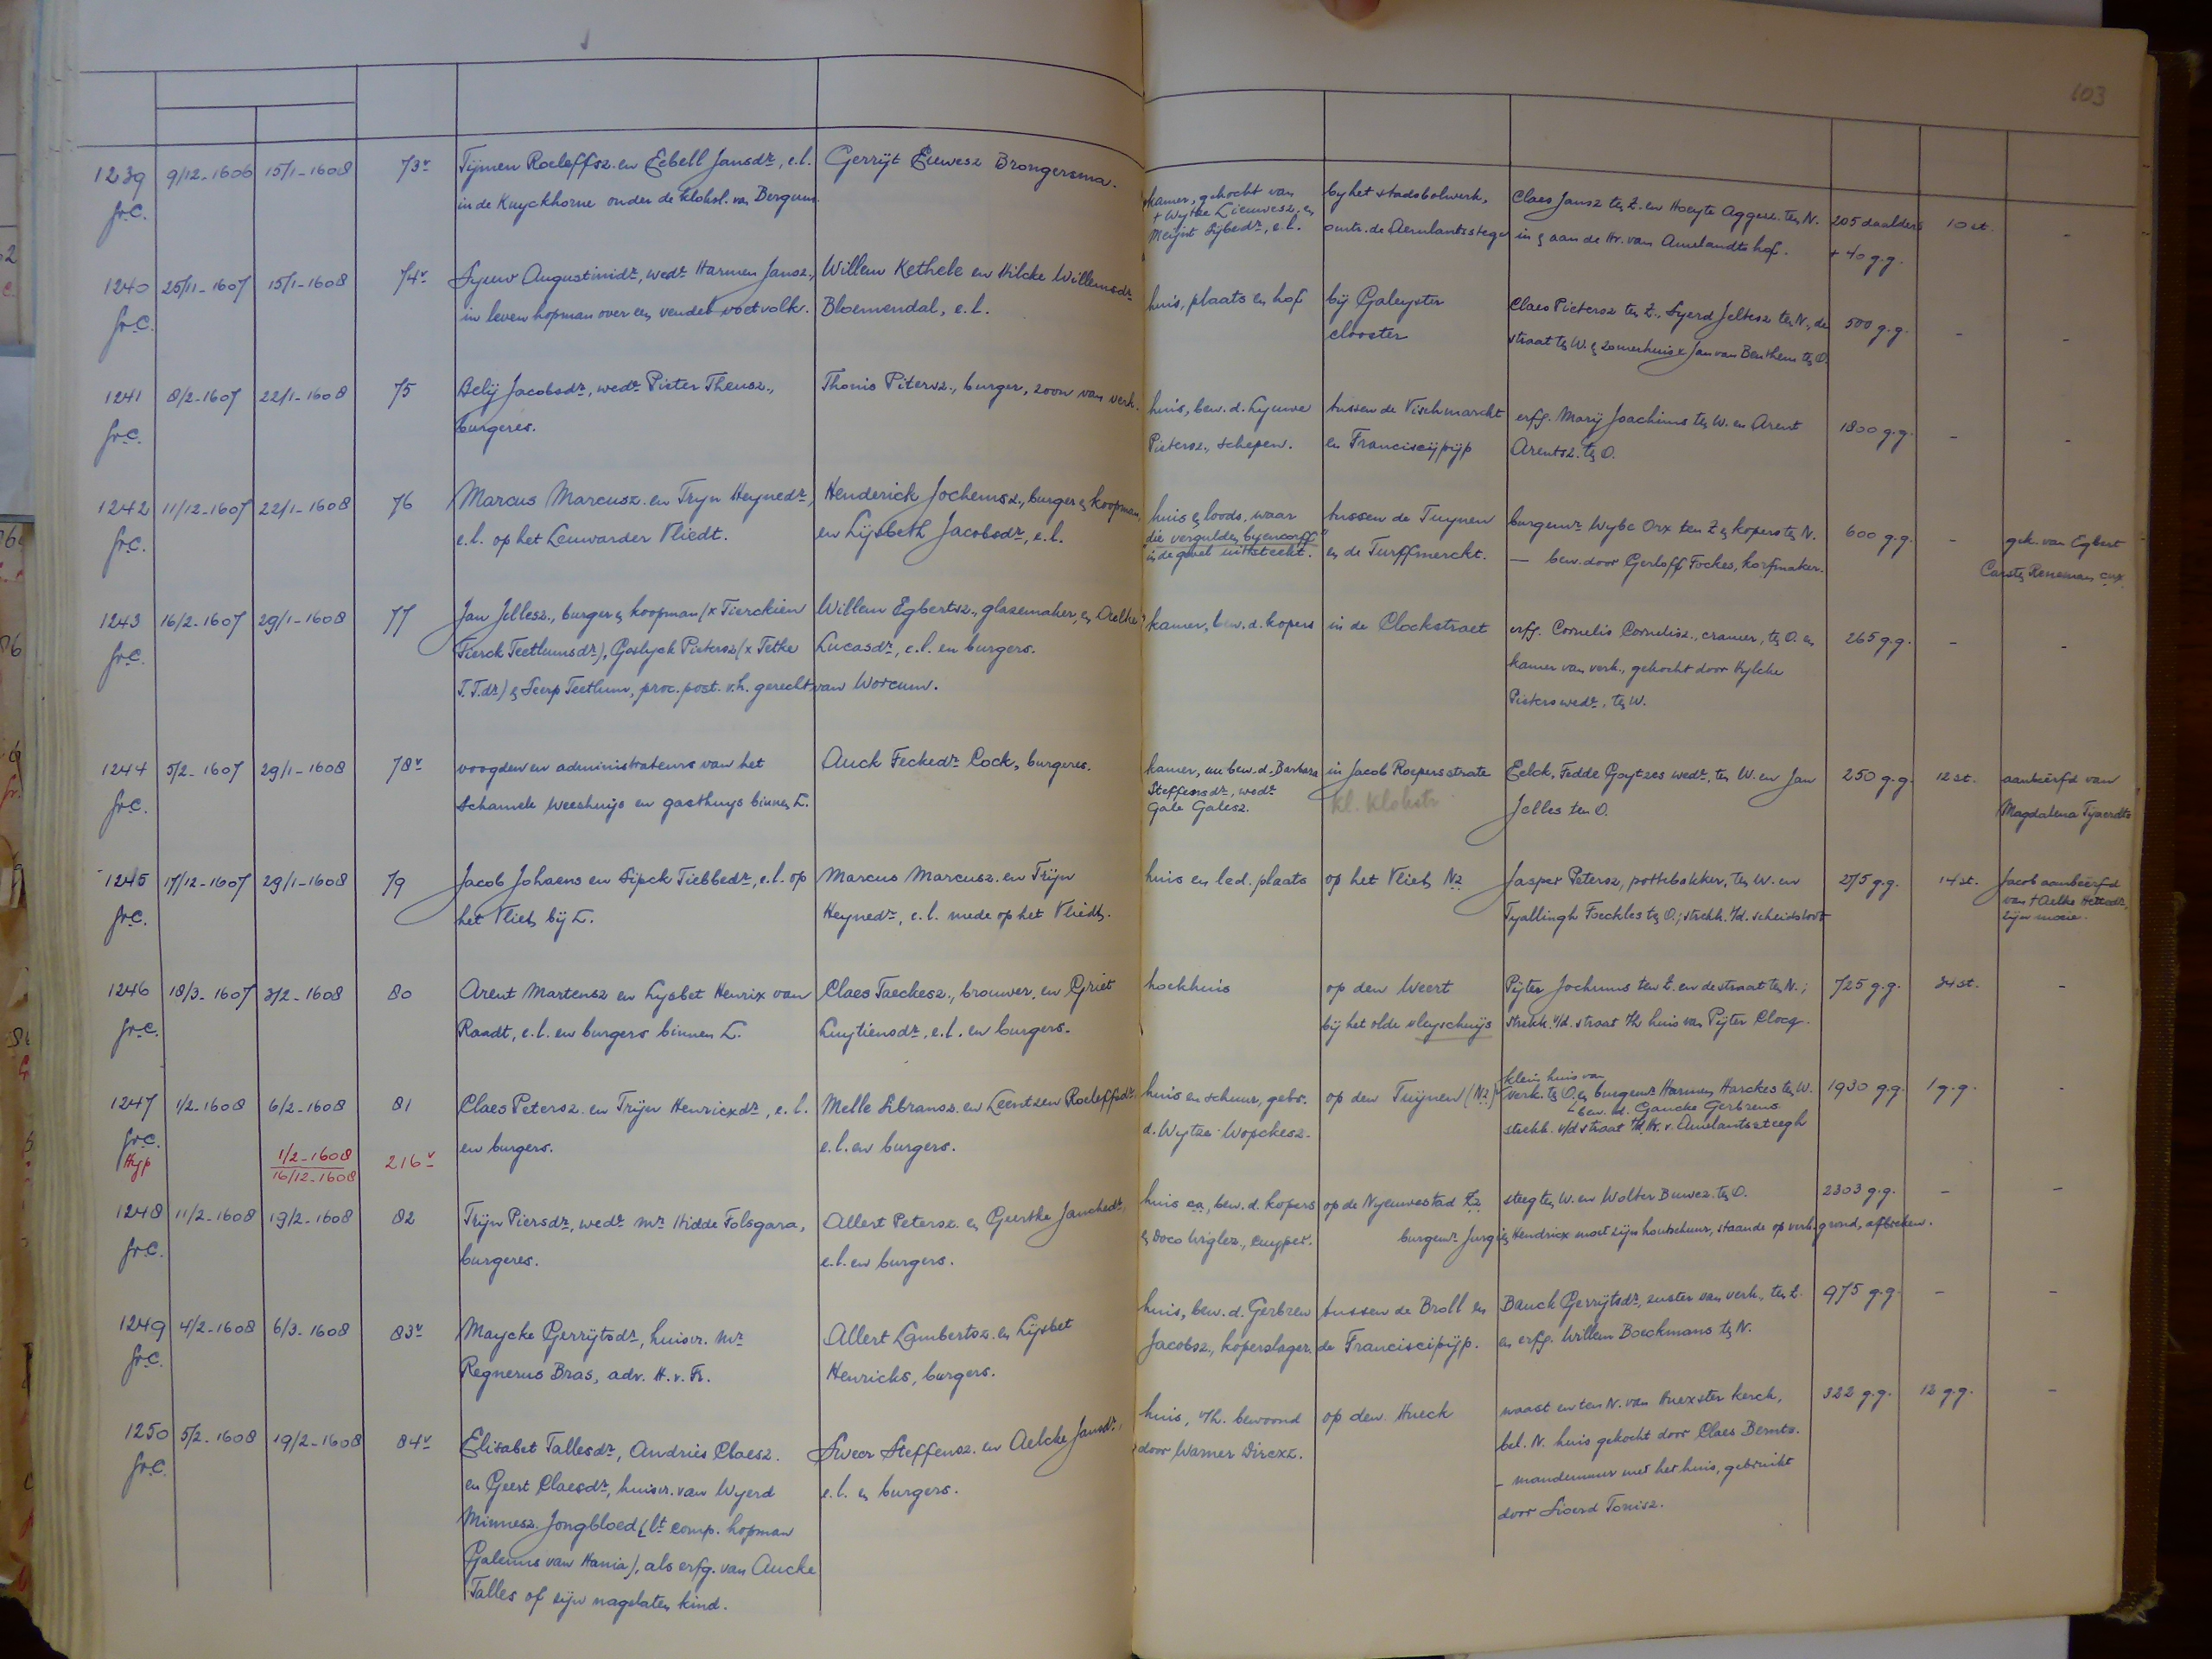 103
1239 9/12-1606 15/1-1608 73v Tijmen Roeleffsz. en Eebell Jansdr, e.l. Gerrijt Lieuwesz Brongersma. kamer, gekocht van by het stadsbolwerk, Claes Jansz ten Z. en Hoeyte Aggesz. ten N. 205 daalders 10 st. -
gr.C. in de Kuyckhorne onder de kloksl. van Bergum. + Wytke Lieuwesz. en omtr. de Aemlantsstege in en aan de Hr. van Amelandts hof. + 40 g.g.
Meijnt Sijbedr, e.l.
1240 25/11-1607 15/1-1608 74v Syuw Augustinidr, wedr Harmen Jansz., Willem Kethele en Hilcke Willemsdr huis, plaats en hof bij Galeyster Claes Pietersz ten Z., Syerd Jeltesz ten N., de 500 g.g. - -
gr.C. in leven hopman over een vendel voetvolk. Bloemendal, e.l. clooster straat ten W. en zomerhuis x Jan van Benthem ten O.
1241 8/2-1607 22/1-1608 75 Aelij Jacobsdr, wedr Pieter Theusz., Thonis Pitersz., burger, zoon van verk. huis, bew. d. Lyuwe tussen de Vischmarckt erfg. Marij Joachims ten W. en Arent 1800 g.g. - -
gr.C. burgeres. Pietersz., schepen. en Franciscijpijp Arentsz. ten O.
1242 11/12-1607 22/1-1608 76 Marcus Marcusz. en Tryn Heynedr, Henderick Jochemsz., burger en koopman, huis en loods, waar tussen de Tuynen burgemr Wybe Orx ten Z en kopers ten N. 600 g.g. - gek. van Egbert
gr.C. e.l. op het Leuwarder Vliedt. en Lijsbeth Jacobsdr, e.l. "die vergulden byencorff" en de Turffmerckt. — bew. door Gerloff Fockes, korfmaker. Carsten Reneman cux.
in de gevel uitsteekt.
1243 16/2-1607 29/1-1608 77 Jan Jellesz., burger en koopman (x Tierckien Willem Egbertsz., glasemaker, en Aelke kamer, bew. d. kopers in de Clockstraet erfg. Cornelis Cornelisz., cramer, ten O. en 265 g.g. - -
gr.C. Tierck Teetlumsdr), Goslyck Pietersz (x Tetke Lucasdr, e.l. en burgers. kamer van verk., gekocht door Hylcke
T.T.dr) en Seerp Teetlum, proc. post. v.h. gerecht van Worcum. Pieters wedr, ten W.
1244 5/2-1607 29/1-1608 78v voogden en administrateurs van het Auck Feckedr Cock, burgeres. kamer, nu bew. d. Barbara in Jacob Roepersstrate Eelck, Fedde Goytzes wedr, ten W. en Jan 250 g.g. 12 st. aanbeërfd van
gr.C. schamele weeshuijs en gasthuys binnen L. Steffensdr, wedr kl. klokstr Jelles ten O. Magdalena Tjaerdts
Gale Galesz.
1245 17/12-1607 29/1-1608 79 Jacob Johaens en Sipck Tiebbedr, e.l. op Marcus Marcusz. en Trijn huis en led. plaats op het Vliet Nz Jasper Petersz, pottebakker, ten W. en 275 g.g. 14 st. Jacob aanbeërfd
gr.C. het Vliet bij L. Heynedr, e.l. mede op het Vliedt. Tyallingh Foeckles ten O.; strekk. t/d. scheidsloot van + Aelke Hettedr,
zijn moeie.
1246 18/3-1607 3/2-1608 80 Arent Martensz en Lysbet Henrix van Claes Taeckesz., brouwer, en Griet hoekhuis op den Weert Pijter Jochums ten Z. en de straat ten N.; 725 g.g. 34 st. -
gr.C. Raadt, e.l. en burgers binnen L. Luytiensdr, e.l. en burgers. bij het olde vleyschuijs strekk. v/d. straat t/h huis van Pijter Clocq.
1247 1/2-1608 6/2-1608 81 Claes Petersz. en Trijn Henricxdr, e.l. Melle Sibransz. en Leentzen Roeleffsdr, huis en schuur, gebr. op den Tuijnen (Nz) klein huis van verk. ten O. en burgemr Harmen Harckes ten W. 1930 g.g. 1 g.g. -
gr.C. en burgers. e.l. en burgers. d. Wytze Wopckesz. bew. d. Gaucke Gerbrens
Hyp 1/2-1608 216v strekk. v/d straat t/d. Hr. v. Amelantssteegh
16/12-1608
1248 11/2-1608 19/2-1608 82 Trijn Piersdr, wedr mr Hidde Folsgara, Allert Petersz. en Geertke Janckedr, huis ca, bew. d. kopers op de Nyeuwestad Zz steeg ten W. en Wolter Buwez. ten O. 2303 g.g. - -
gr.C. burgeres. e.l. en burgers. en Doco Wiglez., cuyper. burgemr Jurgien Hendricx moet zijn houtschuur, staande op verk. grond, afbreken.
1249 4/2-1608 6/3-1608 83v Maycke Gerrijtsdr, huisvr. mr Allert Lambertsz. en Lijsbet huis, bew. d. Gerbren tussen de Broll en Bauck Gerrijtsdr, zuster van verk., ten Z. 975 g.g. - -
gr.C. Regnerus Bras, adv. H.v.Fr. Henricks, burgers. Jacobsz., koperslager. de Franciscipijp. en erfg. Willem Boeckmans ten N.
1250 5/2-1608 19/2-1608 84v Elisabet Tallesdr, Andries Claesz. Sweer Steffensz. en Aelcke Jansdr, huis, t/h. bewoond op den Hueck naast en ten N. van Huexster kerck, 322 g.g. 12 g.g. -
gr.C. en Geert Claesdr, huisvr. van Wyerd e.l. en burgers. door Warner Dircxz. bel. N. huis gekocht door Claes Berntsz.
Minnesz. Jongbloed (lt comp. hopman - mandemuur met het huis, gebruikt
Galenus van Hania), als erfg. van Aucke door Sioerd Tonisz.
Talles of zijn nagelaten kind.